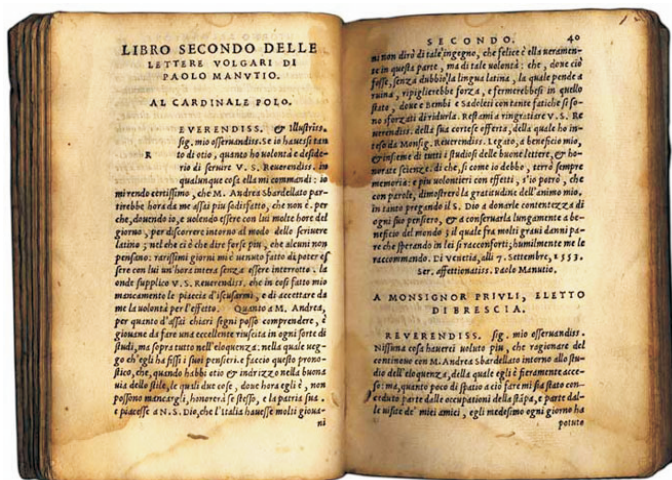 LIBRO SECONDO DELLE
LETTERE VOLGARI DI
PAOLO MANVTIO.
AL CARDINALE POLO.
R EVERENDISS. & Illustriss.
sig. mio osseruandiss. Se io hauessi tan
to di otio, quanto ho volontà e deside
rio di seruire V. S. Reuerendiss. in
qualunque cosa ella mi commandi: io
mi rendo certissimo, che M. Andrea Sbardellato par-
tirebbe hora da me assai piu sodisfatto, che non è. per
che, douendo io, e volendo essere con lui molte hore del
giorno, per discorrere intorno al modo dello scriuere
latino; nel che ci è che dire forse piu, che alcuni non
pensano: rarissimi giorni mi è venuto fatto di poter es
sere con lui un'hora intera senza essere interrotto. la
onde supplico V. S. Reuerendiss. che in cosi fatto mio
mancamento le piaccia d'iscusarmi, e di accettare da
me la volontà per l'effetto. Quanto a M. Andrea,
per quanto d'assai chiari segni posso comprendere, è
giouane da fare una eccellente riuscita in ogni sorte di
studi, ma sopra tutto nell'eloquenza. nella quale ueg
go ch'egli ha fissi i suoi pensieri. e faccio questo prono-
stico, che, quando habbi otio & indrizzo nella buona
uia dello stile, le quali due cose, doue hora egli è, non
possono mancargli, honorerà se stesso, e la patria sua.
e piacesse a N. S. Dio, che l'italia hauesse molti gioua-
ni
SECONDO. 40
ni non dirò di tale ingegno, che felice è ella ueramen-
te in questa parte, ma di tale volontà: che, doue ciò
fosse, senza dubbio la lingua latina, la quale pende a
ruina, ripiglierebbe forza, e fermerebbesi in quello
stato, doue e Bembi e Sadoleti con tante fatiche si so-
no sforzati di ridurla. Restami a ringratiare V. S. Re
uerendiss. della sua cortese offerta, della quale ho in-
teso da Monsig. Reuerendiss. Legato, a beneficio mio,
& insieme di tutti i studiosi delle buone lettere, & ho-
norate scienze. di che, si come io debbo, terrò sempre
memoria: e piu volontieri con effetti, s'io potrò, che
con parole, dimostrerò la gratitudine dell'animo mio.
in tanto pregando il S. Dio a donarle contentezza di
ogni suo pensiero, & a conseruarla lungamente a be-
neficio del mondo; il quale fra molti graui danni pa-
re che sperando in lei si racconforti; humilmente me le
raccommando. Di Venetia, alli 7. Settembre, 1553.
Ser. affettionatiss. Paolo Manutio.
A MONSIGNOR PRIVLI, ELETTO
DI BRESCIA.
REVERENDISS. sig. mio osseruandiss.
Nissuna cosa hauerei voluto piu, che ragionare del
continouo con M. Andrea Sbardellato intorno allo stu
dio dell'eloquenza, della quale egli è fieramente acce-
so: ma, quanto poco di spatio a ciò fare mi sia stato con
ceduto parte dalle occupationi della stãpa, e parte dal-
le uisite de' miei amici, egli medesimo ogni giorno ha
potuto